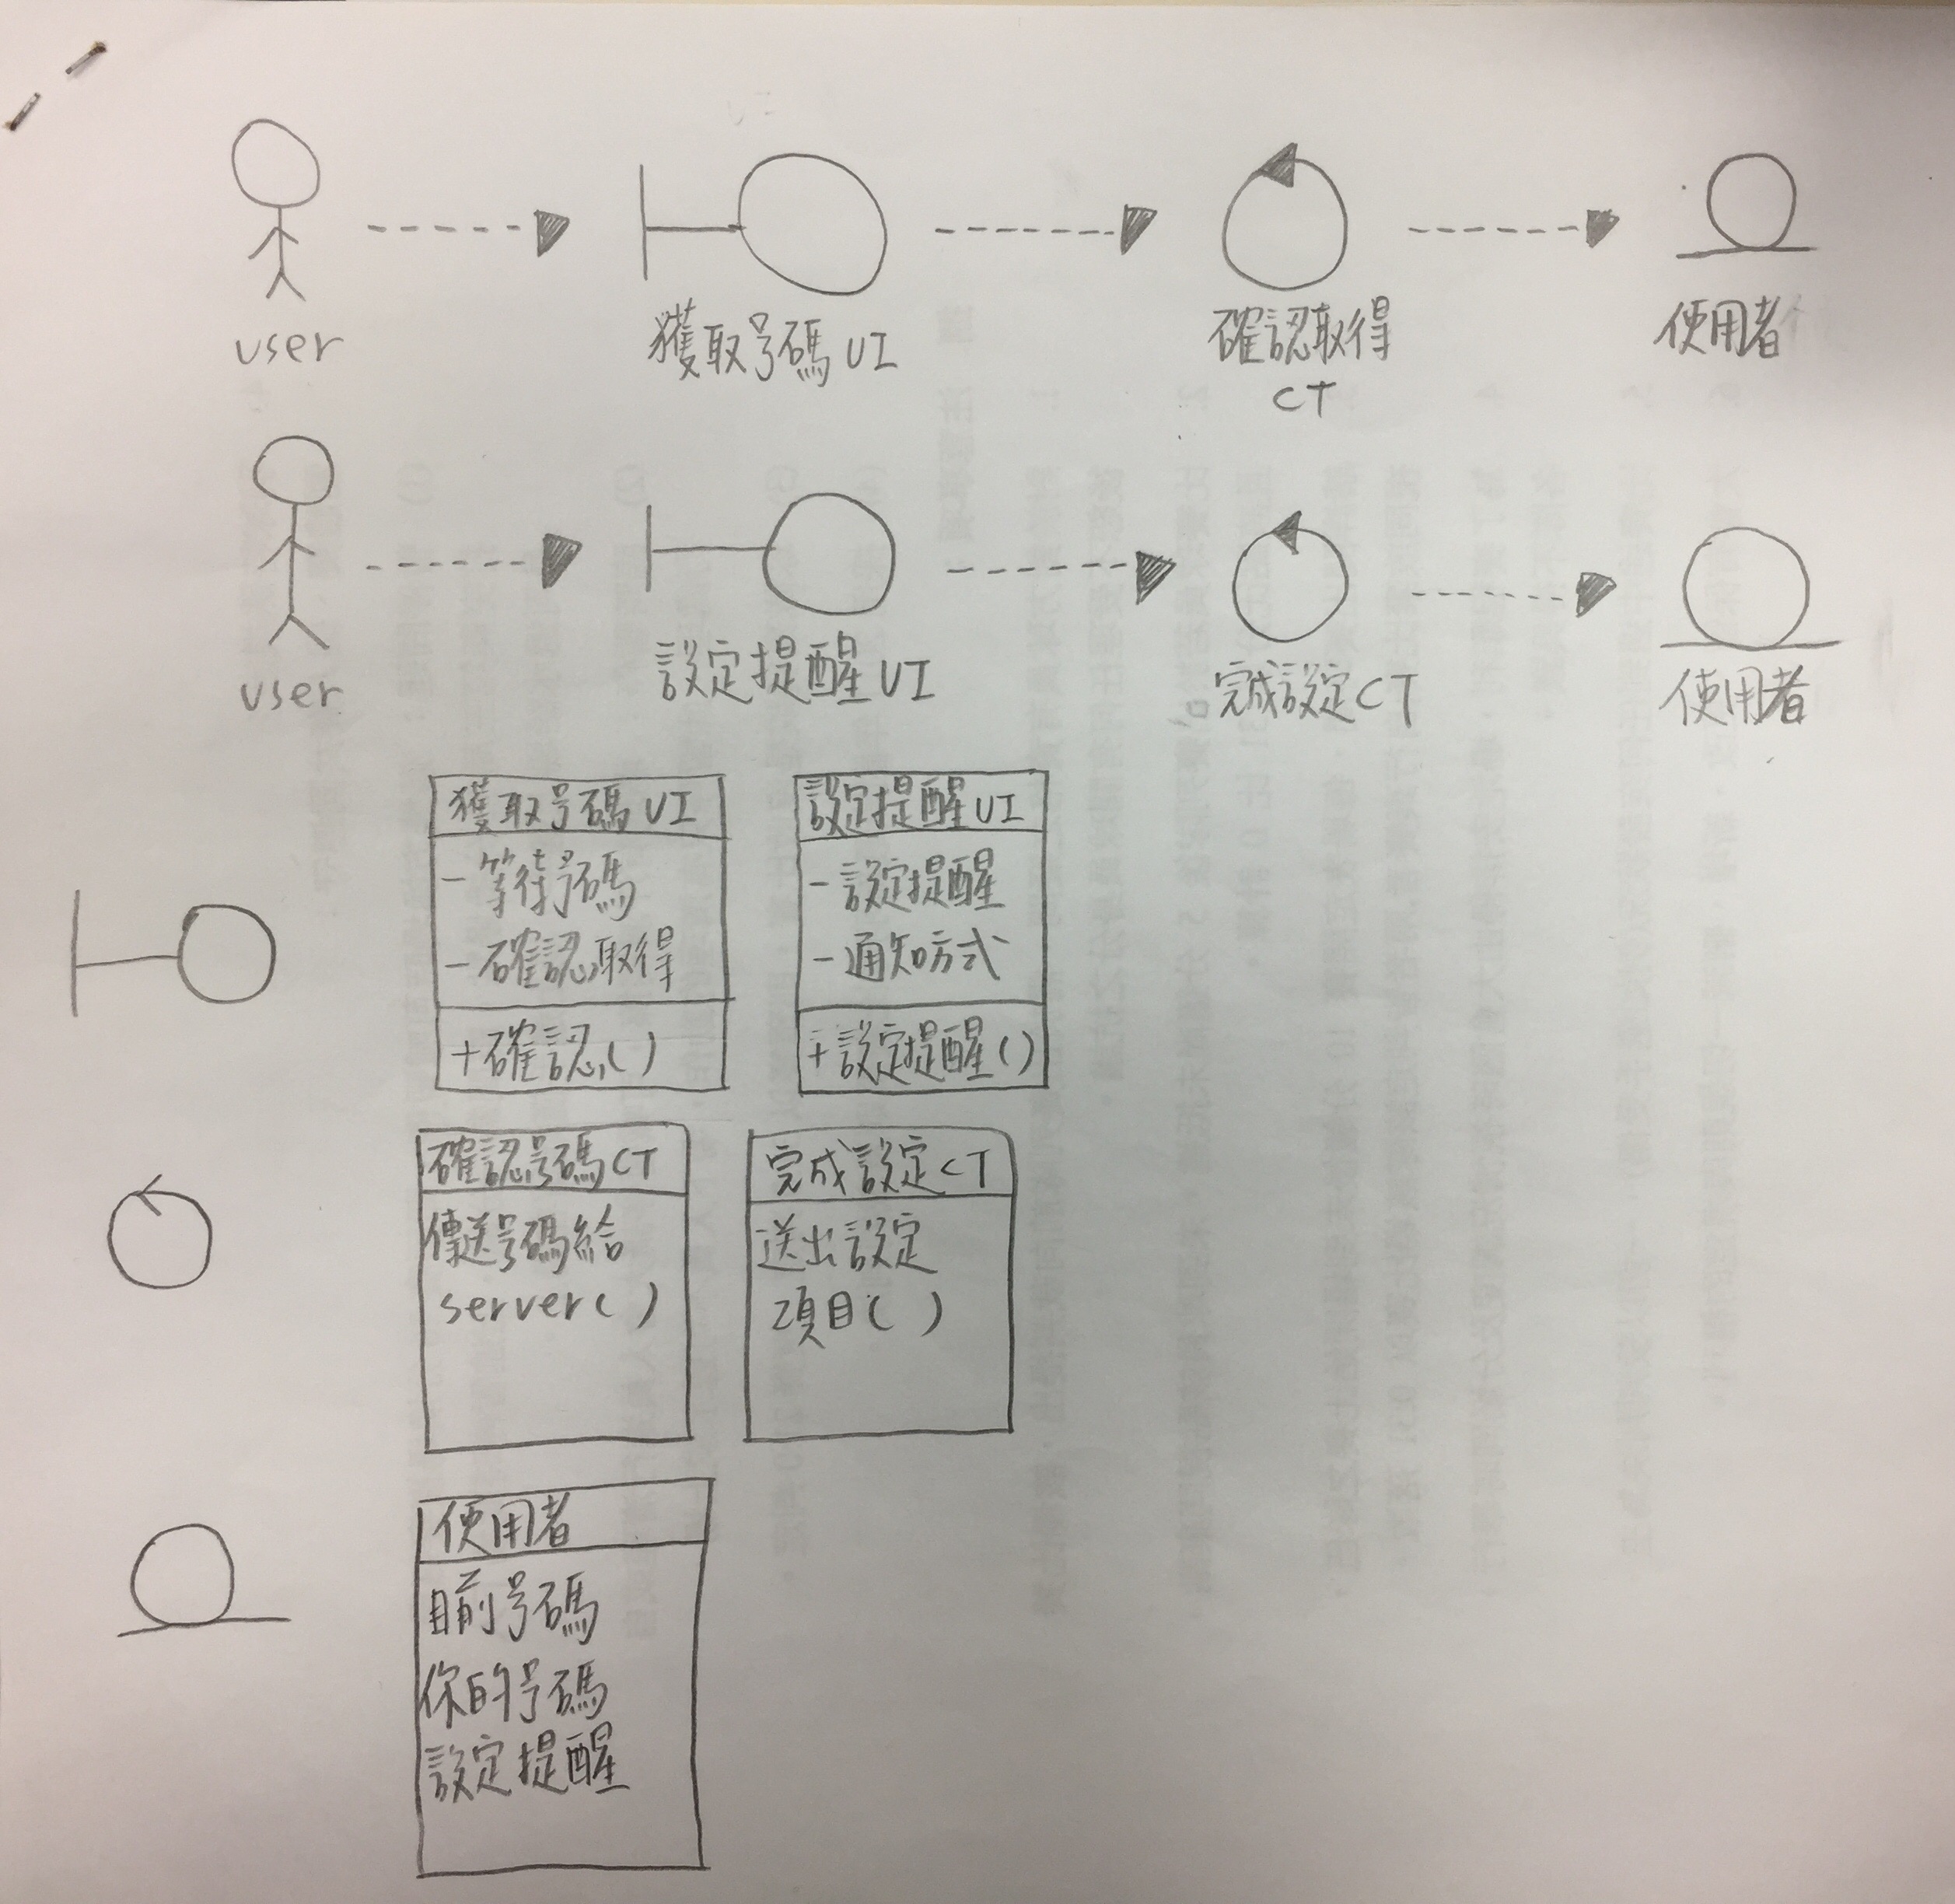 user
獲取号碼UI
確認取得
CT
使用者
user
設定提醒UI
完成設定CT
使用者
獲取号碼UI
-等待号碼
-確認取得
+確認()
設定提醒UI
-設定提醒
-通知方式
+設定提醒()
確認号碼CT
傳送号碼給
server()
完成設定CT
送出設定
項目()
使用者
目前号碼
你的号碼
設定提醒